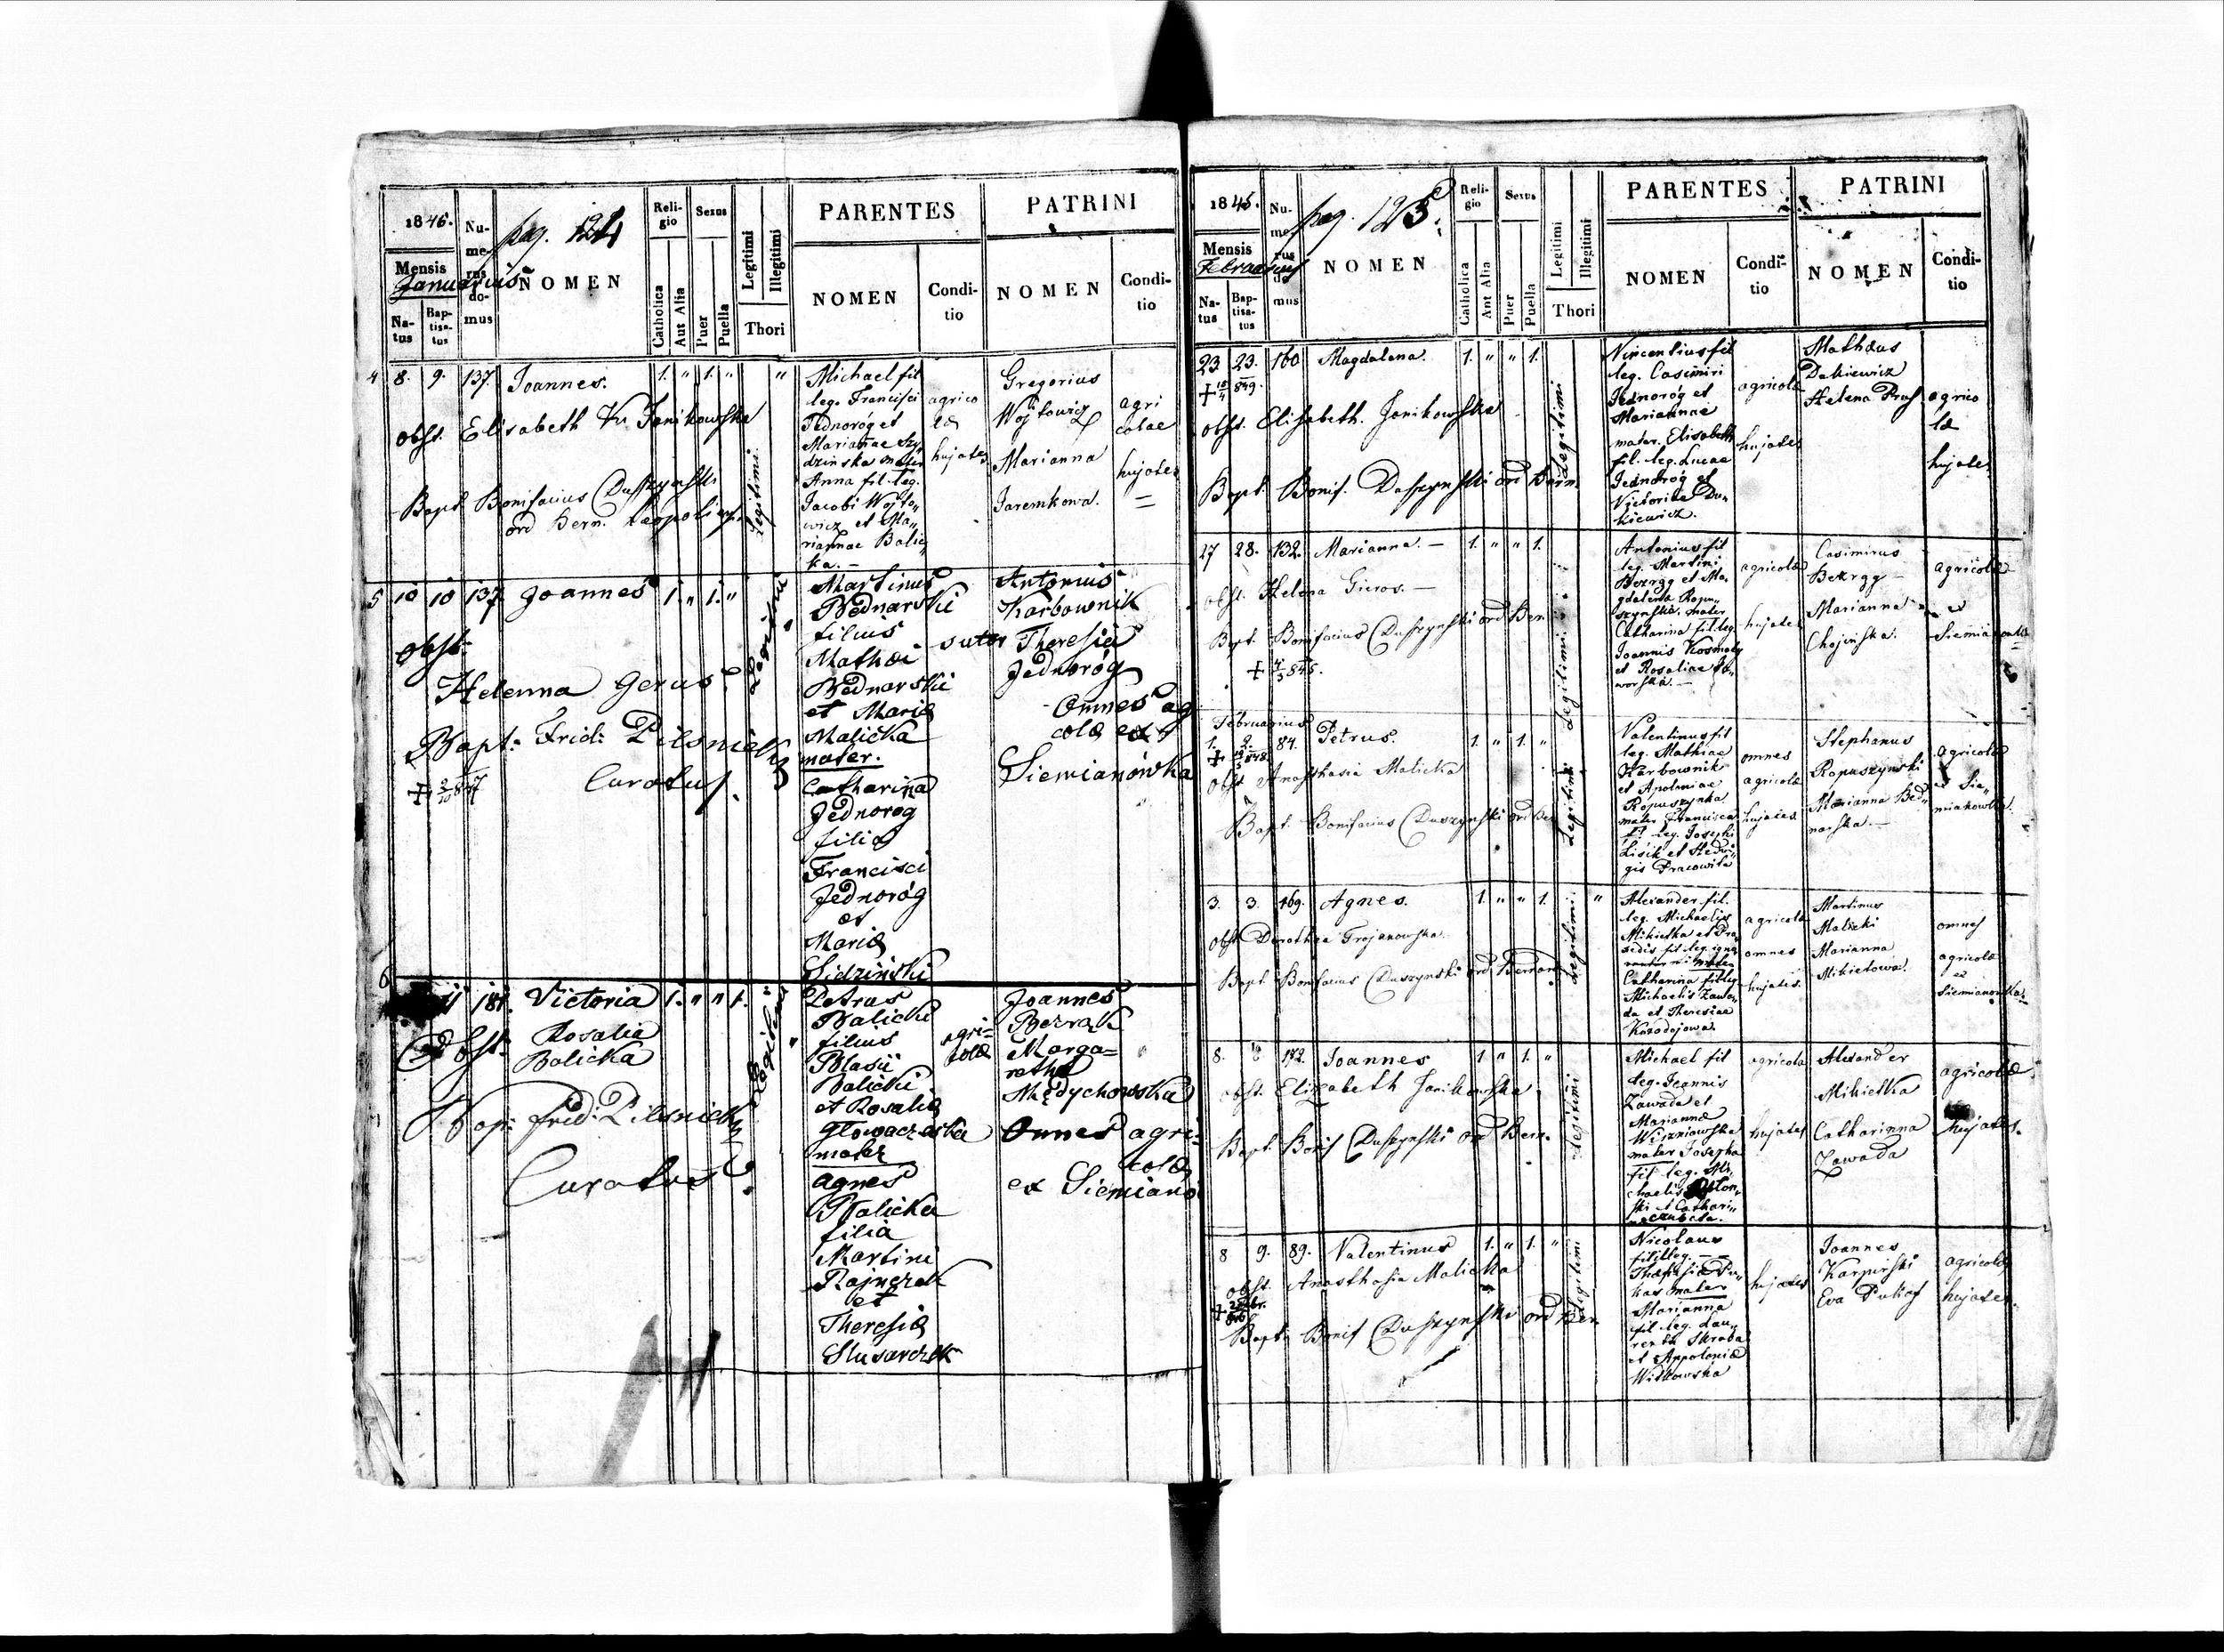 1846.
Numerus domus
pag. 124
NOMEN
Religio
Catholica
Aut Alia
Sexus
Puer
Puella
Legitimi
Illegitimi
Thori
PARENTES
NOMEN
Conditio
PATRINI
NOMEN
Conditio
Mensis
Januarius
Natus
Baptisatus
4 8. 9. 137. Joannes. 1. " 1. " "
obst. Elisabeth Janikowska
Bapt Bonifacius Duszynski
ord Bern.
Legitimi.
Michael fil
leg. Francisci
Jednoróg et
Mariannae Szy
dzinska mater
Anna fil. leg.
Jacobi Wojto„
wicz et Ma„
riannae Balic
ka. —
agrico
læ
hujates
Gregorius
Wojtowicz
Marianna
Jaremkowa.
agri
colae
hujates
5 10 10 137 Joannes 1. " 1. "
obst.
Helenna Gerus
Bapt: Frid: Pilsnicki
Curatus.
Legitimi
Martinus
Bednarski
filius
Mathæi
Bednarski
et Mariæ
Malicka
mater.
Catharina
Jednorog
filia
Francisci
Jednoróg
et
Mariæ
Sidzinski
sutor
Antonius
Karbownik
Theresia
Jednorog
Omnes ag
colæ ex
Siemianówka
6 11 181. Victoria 1. " " 1.
Obst. Rosalia
Balicka
Bap: Frid: Pilsnicki
Curatus.
Legitimi
Petrus
Balicki
filius
Blasii
Balicki
et Rosaliæ
Głowaczeska
mater
Agnes
Balicka
filia
Martini
et
Theresiæ
Slusarczek
agri=
colæ
Joannes
Bezrak
Marga=
retha
Mędychowska
Omnes agri=
colæ
ex Siemianó
1846.
Numerus domus
pag. 125.
NOMEN
Religio
Catholica
Aut Alia
Sexus
Puer
Puella
Legitimi
Illegitimi
Thori
PARENTES
NOMEN
Conditio
PATRINI
NOMEN
Conditio
Mensis
Februarius
Natus
Baptisatus
23 23. 160. Magdalena. 1. " " 1.
849.
obst. Elisabeth. Janikowska
Bapt. Bonif. Duszynski ord Bern.
Legitimi
Vincentius fil
leg. Casimiri
Jednoróg et
Mariannae
mater. Elisabeth
fil. leg. Lucae
Jednoróg et
Victoriæ Du„
kiewicz.
agricolæ
hujates
Mathæus
Dukiewicz
Helena Prus
agrico
læ
hujates
27 28. 132. Marianna. — 1. " " 1.
obst. Helena Gieros. —
Bapt. Bonifacius Duszynski ord Ber
Legitimi
Antonius fil
leg. Martini
Bezrąg et Ma„
gdalena Ropu„
szynska. mater
Catharina fil. leg
Joannis Kosmaty
et Rosaliae Ja„
worska. —
agricolæ
hujates
Casimirus
Bezrąg —
Marianna
Chojińska.
agricolæ
Februarius
1. 2. 84. Petrus. 1. " 1. "
obst Anasthasia Malicka
Bapt. Bonifacius Duszynski ord Ber
Legitimi
Valentinus fil
leg. Mathiae
Karbownik
et Apoloniae
Ropuszynka
mater Francisca
fil leg. Josephi
Lisik et Hedwi„
gis Pracowita
omnes
agricolæ
hujates
Stephanus
Ropuszynski
Marianna Bed„
narska. —
agricolæ
3. 3. 169. Agnes. 1. " " 1. "
obst Dorothea Trojanowska.
Bapt Bonifacius Duszynski ord Bernard
Legitimi
Alexander fil.
leg. Michaelis
Mikietka et
mater
Catharina fil. leg
Michaelis Zawa„
da et Theresiae
Kozodojowa.
agricolæ
omnes
hujates.
Martinus
Malicki
Marianna
Mikietowa.
omnes
agricolæ
ex
Siemianowka.
8. 182. Joannes 1. " 1. "
obst. Elizabeth Janikowska
Bapt. Bonif Duszynski ord Bern.
Legitimi
Michael fil
leg. Joannis
Zawada et
Mariannæ
Wiszniowska
mater Josepha
fil leg. Mi„
chaelis
et Cathari„
agricolæ
hujates
Alexander
Mikietka
Catharinna
Zawada
agricolæ
hujates.
8 9. 89. Valentinus 1. " 1. "
obst. Anasthasia Malicka
Bapt. Bonif Duszynski ord Ber
Legitimi
Nicolaus
fil. leg. —
mater
Marianna
fil. leg. Lau„
renti Skroba
et Appoloniæ
Witkowska
hujates
Joannes
Karpinski
Eva
agricolæ
hujates.